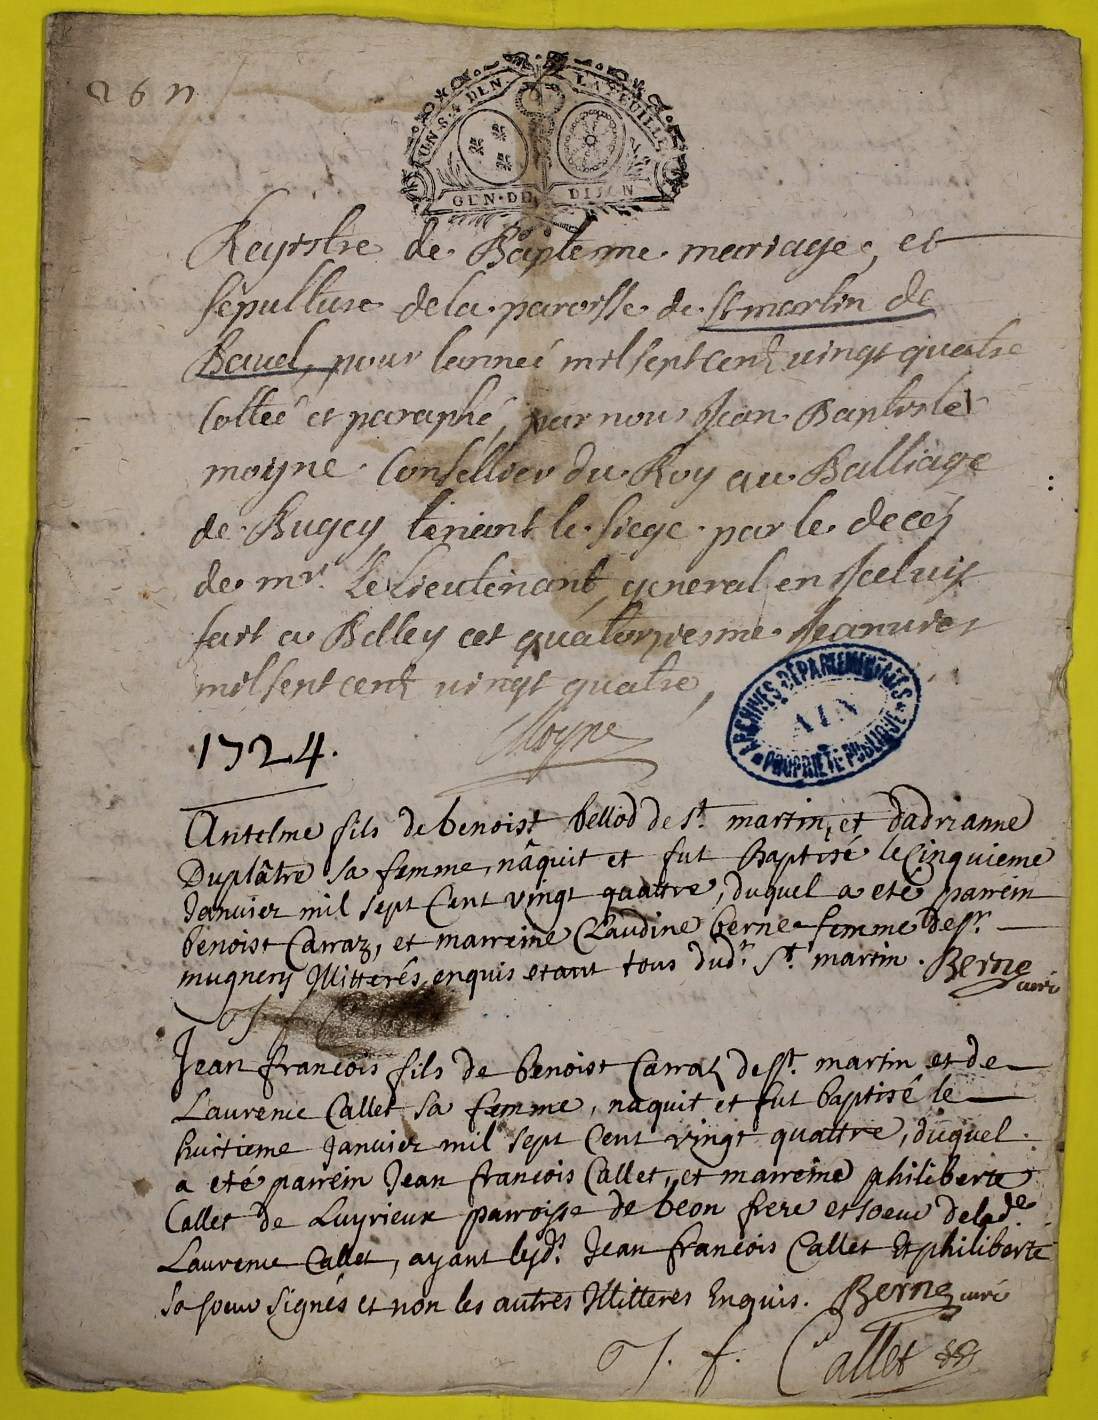 26 n
UN S. 4 DEN. LA FEUILLE
GEN. DE DIJON
Registre de Baptesme mariage, et
sepulture de la paroisse de st martin de
Bavel, pour lanneé mil sept cent vingt quatre
Cotteé et paraphé, par nous Jean Baptiste
moyne Consellier du Roy au Balliage
de Bugey tenant le siege par le decés
de mr. Le Lieutenant general en Jceluy
fait a Belley cet quatorziesme Jeanvier
mil sept cent vingt quatre,
Moyne
ARCHIVES DÉPARTEMENTALES
AIN
PROPRIÉTÉ PUBLIQUE
1724.
Antelme fils de benoist bellod de st. martin, et dadrianne
Duplâtre sa femme, nâquit et fut Baptisé le Cinquieme
Janvier mil sept Cent vingt quattre, duquel a eté parrein
benoist Carraz, et marreine Claudine berne femme de sr.
mugnery Jllitterés enquis etant tous dud. st. martin. Berne
curé
Jean françois fils de benoist Carraz de st. martin et de
Laurence Callet sa femme, naquit et fut baptisé le
huitieme Janvier mil sept Cent vingt quattre, duquel
a eté parrein Jean françois Callet, et marreine philiberte
Callet de Luyrieux parroisse de béon frere et soeur de lade
Laurence Callet, ayant lesds. Jean françois Callet et philiberte
sa soeur signés et non les autres Jllitteres Enquis. Berne curé
J. f. Callet